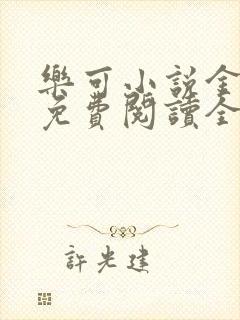 樂可小說全
免費閱讀全
許光建